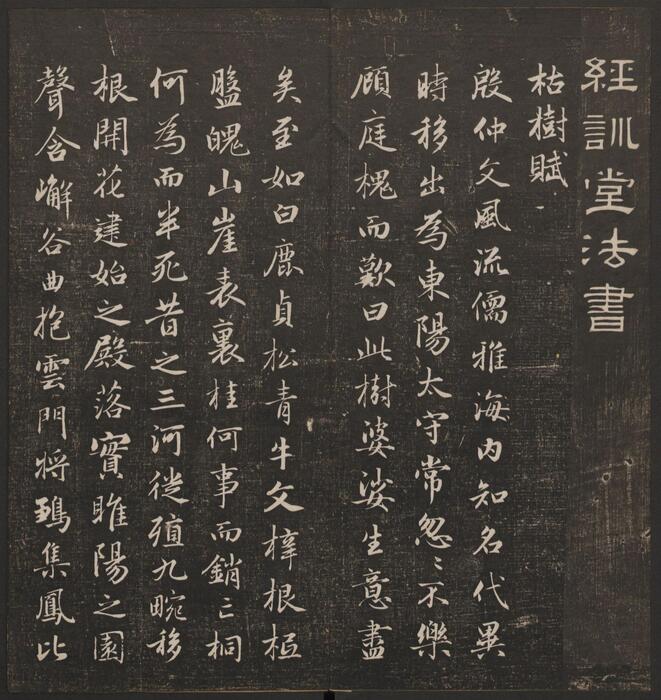 經訓堂法書
枯樹賦
殷仲文風流儒雅海內知名代異
時移出為東陽太守常忽〻不樂
顧庭槐而歎曰此樹婆娑生意盡
矣至如白鹿貞松青牛文梓根柢
盤魄山崖表裏桂何事而銷亡桐
何為而半死昔之三河徙殖九畹移
根開花建始之殿落實睢陽之園
聲含嶰谷曲抱雲門將鶵集鳳比